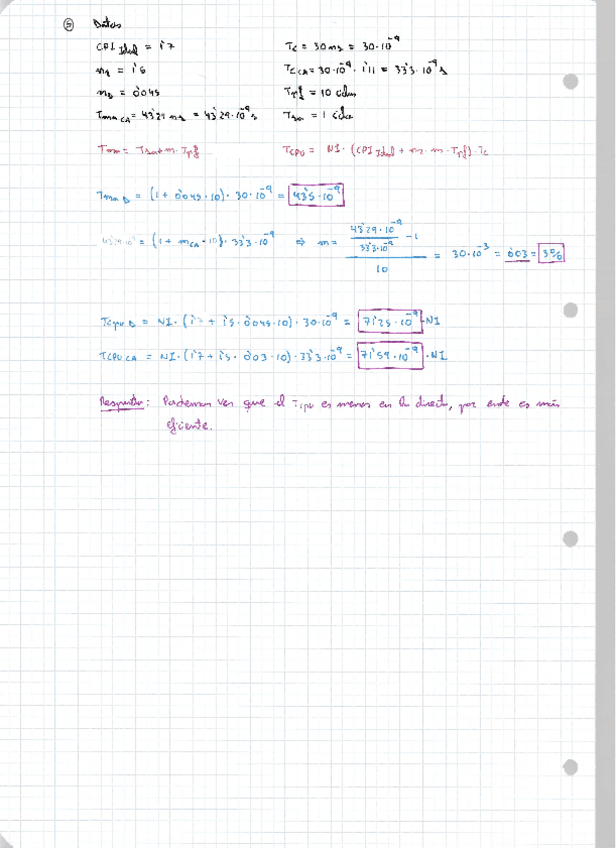 ⑤ Datos
CPI Ideal = 1'7 Tc = 30 ns = 30·10⁻⁹
n₁ = 1'5 Tc CA = 30·10⁻⁹ · 1'11 = 33'3·10⁻⁹ s
m_D = 0'045 Tpf = 10 ciclos
Tma CA = 43'29 ns = 43'29·10⁻⁹ s Tsa = 1 ciclo
Tma = Tsa + m · Tpf TCPU = NI · (CPI Ideal + n · m · Tpf) · Tc
Tma D = (1 + 0'045 · 10) · 30·10⁻⁹ = 43'5·10⁻⁹
43'29·10⁻⁹ = (1 + m CA · 10) · 33'3·10⁻⁹ ⇒ m = ((43'29·10⁻⁹ / 33'3·10⁻⁹) - 1) / 10 = 30·10⁻³ = 0'03 = 3%
Tcpu D = NI · (1'7 + 1'5 · 0'045 · 10) · 30·10⁻⁹ = 71'25·10⁻⁹ · NI
TCPU CA = NI · (1'7 + 1'5 · 0'03 · 10) · 33'3·10⁻⁹ = 71'59·10⁻⁹ · NI
Respuesta: Podemos ver que el Tcpu es menos en la directa, por ende es más
eficiente.